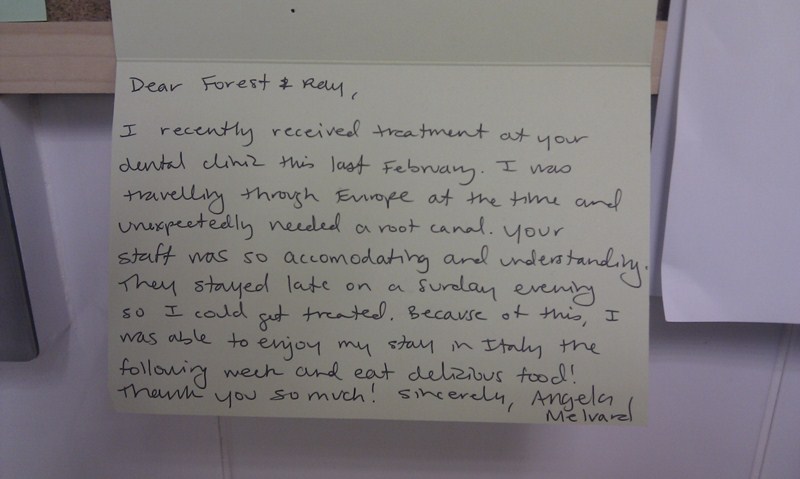 Dear Forest & Ray,
I recently received treatment at your
dental clinic this last February. I was
travelling through Europe at the time and
unexpectedly needed a root canal. Your
staff was so accomodating and understanding.
They stayed late on a Sunday evening
so I could get treated. Because of this, I
was able to enjoy my stay in Italy the
following week and eat delicious food!
Thank you so much! Sincerely, Angela
Melvard